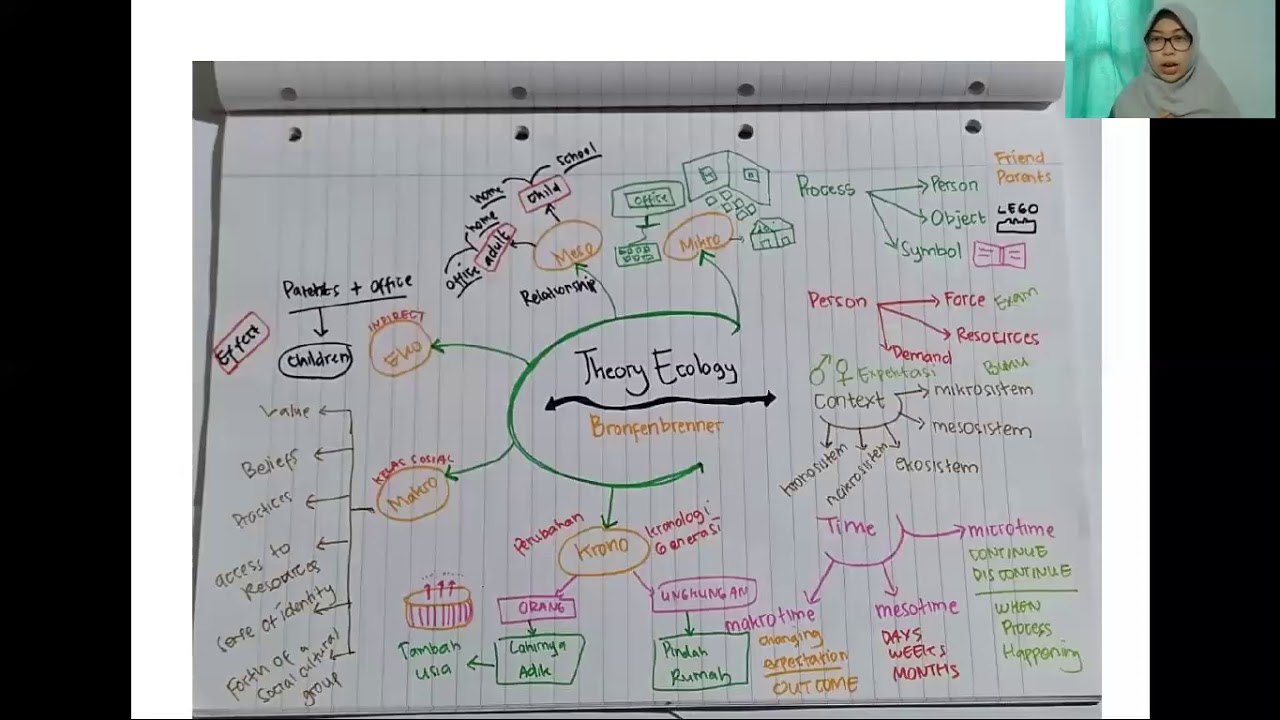 Theory Ecology
Bronfenbrenner
Mikro
office
Relationship
Meso
child
home
school
adult
home
office
INDIRECT
EKO
Parents + Office
Effect
Children
KELAS SOSIAL
Makro
Value
Beliefs
Practices
access to
Resources
Sense of identity
Forth of a
Social cultural
group
Perubahan
Krono
kronologi
Generasi
ORANG
Lahirnya
Adik
Tambah
usia
Pindah
Rumah
Process
Person
Friend
Parents
Object
LEGO
Symbol
Person
Force
Exam
Resources
Demand
Expektasi
Context
mikrosistem
mesosistem
ekosistem
makrosistem
kronosistem
Time
microtime
CONTINUE
DISCONTINUE
WHEN
Process
Happening
mesotime
DAYS
WEEKS
MONTHS
makrotime
changing
expertation
OUTCOME